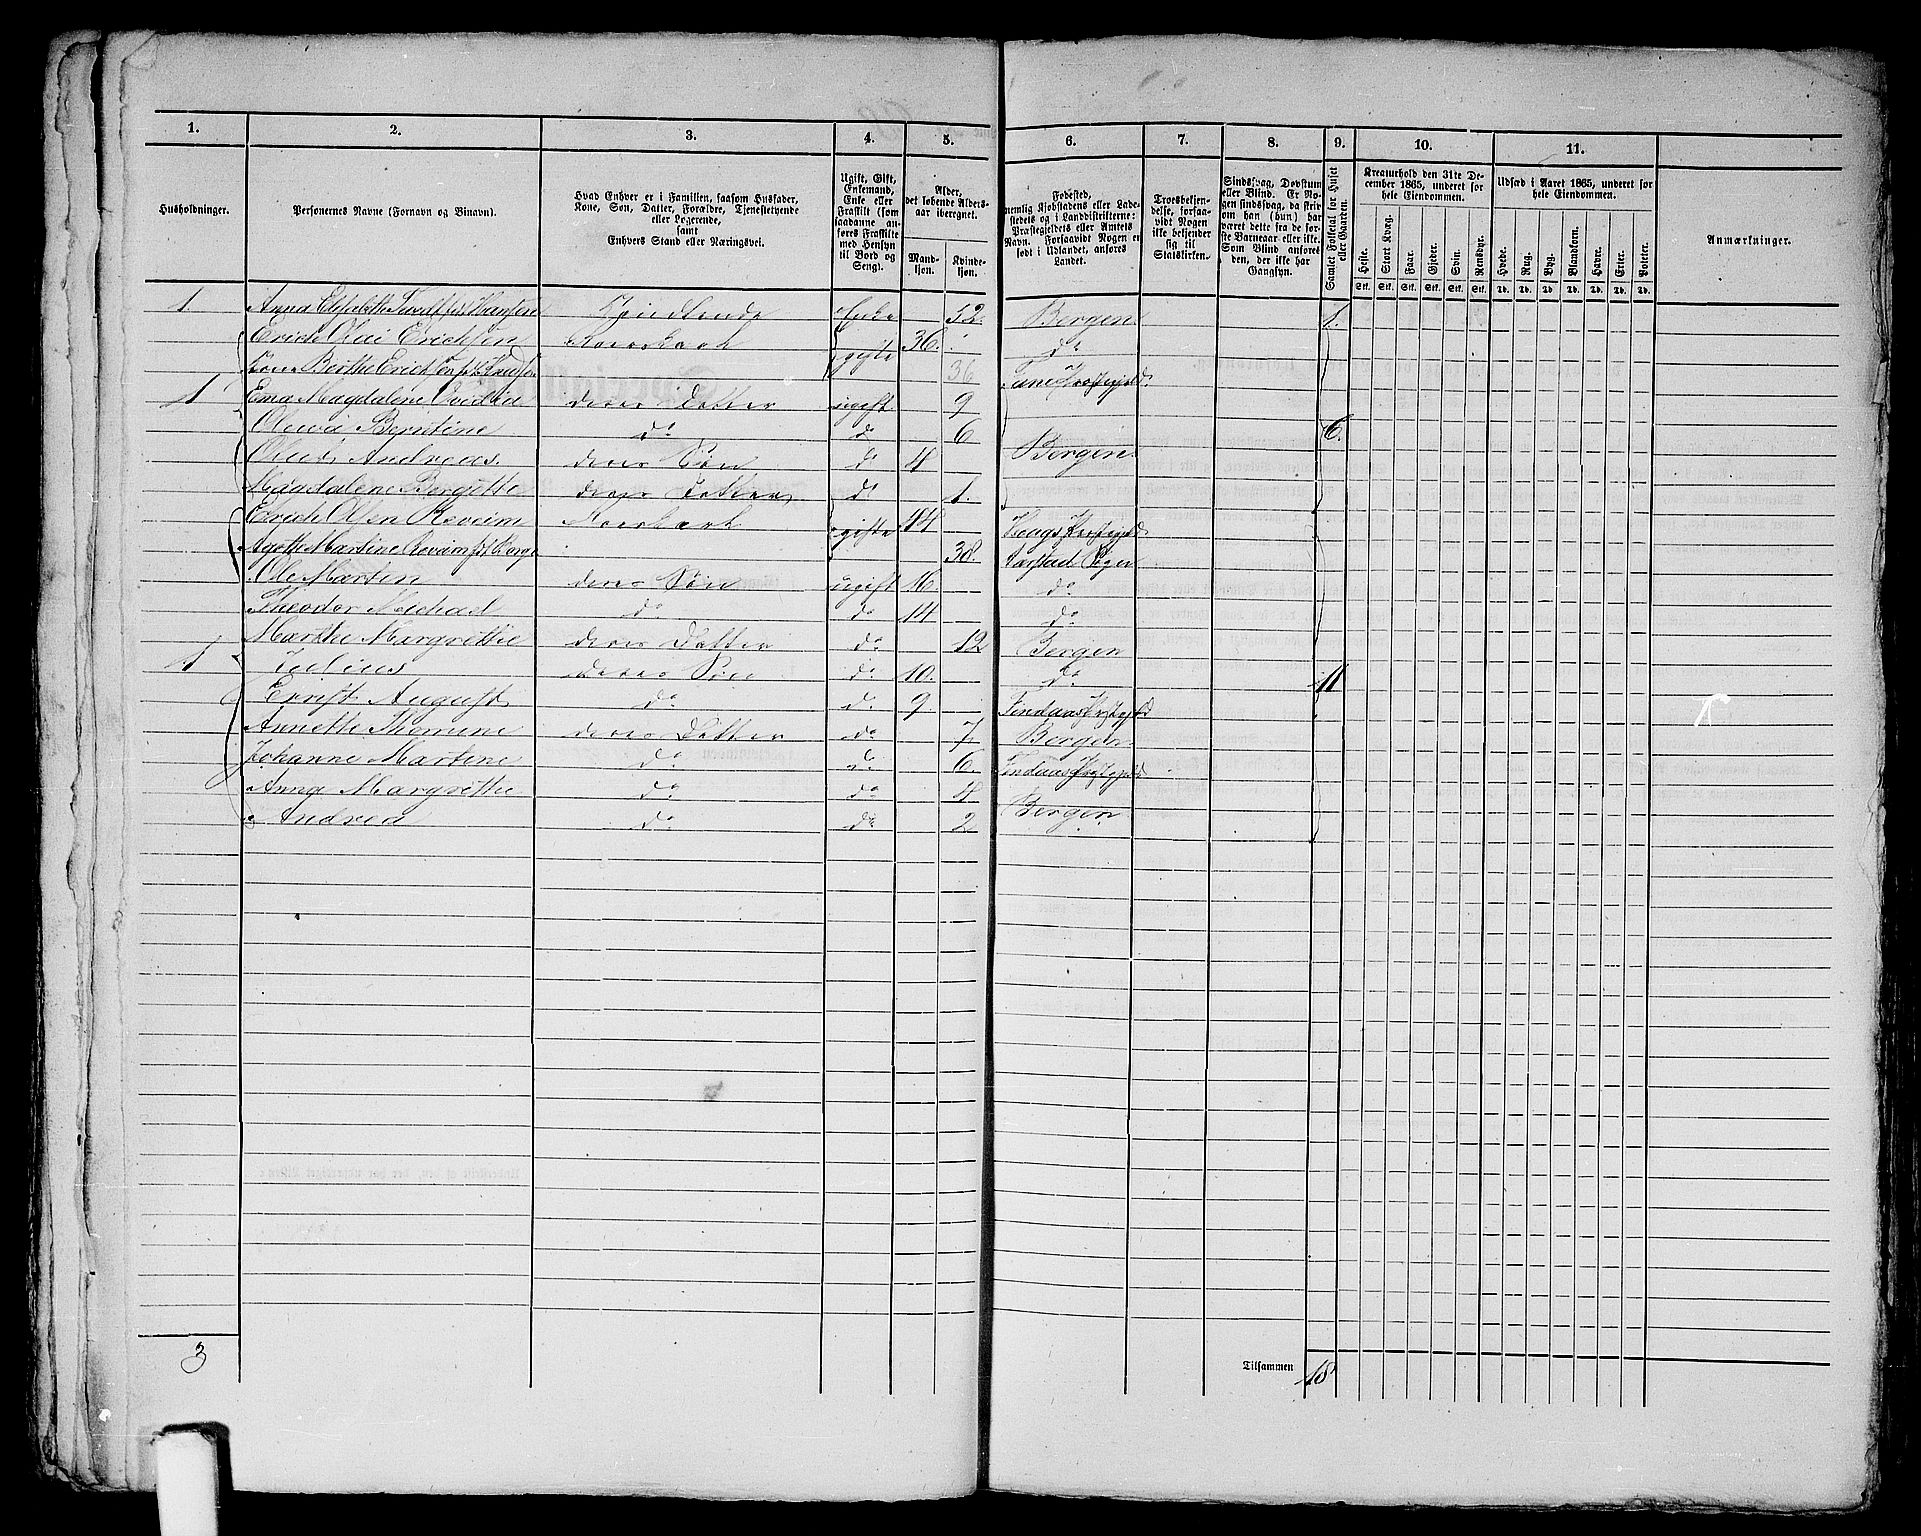 1. 2. 3. 4. 5. 6. 7. 8. 9. 10. 11.
Husholdninger.
Personernes Navne (Fornavn og Binavn).
Hvad Enhver er i Familien, saasom Husfader, Kone, Søn, Datter, Forældre, Tjenestetyende eller Logerende, samt Enhvers Stand eller Næringsvei.
Ugift, Gift, Enkemand, Enke eller Fraskilt (som saadanne anføres Fraskilte med Hensyn til Bord og Seng).
Alder, det løbende Aldersaar iberegnet.
Mandkjøn. Kvindekjøn.
Fødested, nemlig Kjøbstadens eller Ladestedets og i Landdistrikterne: Præstegjeldets eller Amtets Navn. Forsaavidt Nogen er født i Udlandet, anføres Landet.
Troesbekjendelse, forsaavidt Nogen ikke bekjender sig til Statskirken.
Sindssvag, Døvstum eller Blind. Er Nogen sindssvag, da skrives om han (hun) har været dette fra de første Barneaar eller ikke. Som Blind anføres den, der ikke har Gangsyn.
Samlet Folketal for Huset eller Gaarden.
Kreaturhold den 31te December 1865, underet for hele Eiendommen.
Heste. Stort Kvæg. Faar. Gjeder. Svin. Rensdyr.
Stk. Stk. Stk. Stk. Stk. Stk.
Udsæd i Aaret 1865, underet for hele Eiendommen.
Hvede. Rug. Byg. Blandkorn. Havre. Erter. Poteter.
Td. Td. Td. Td. Td. Td. Td.
Anmærkninger.
1. Anna Elisabeth Hansen Enke 52. Bergen 1.
Erich Olai Erichsen 36. do
Kone Berthe Erichsen gifte 36
1 Ema Magdalene deres Datter ugift 9
Olava Berntine do d 6 6.
Oluf Andreas. deres Søn d 4 Bergen
Magdalene Bergitte deres Datter d 1.
Erich Olsen Reveim gifte 44
Martine Reveim 38.
Ole Martin deres Søn ugift 16. do
Theodor Michael do do 14 do
Marthe Margrethe deres Datter do 12 Bergen
1 Julius deres Søn do 10. do 11
Ernst August do do 9
Annette Thomine deres Datter do 7 Bergen
Johanne Martine do do 6
Anna Margrethe do do 4
Andrea do do 2 Bergen
3
Tilsammen 18